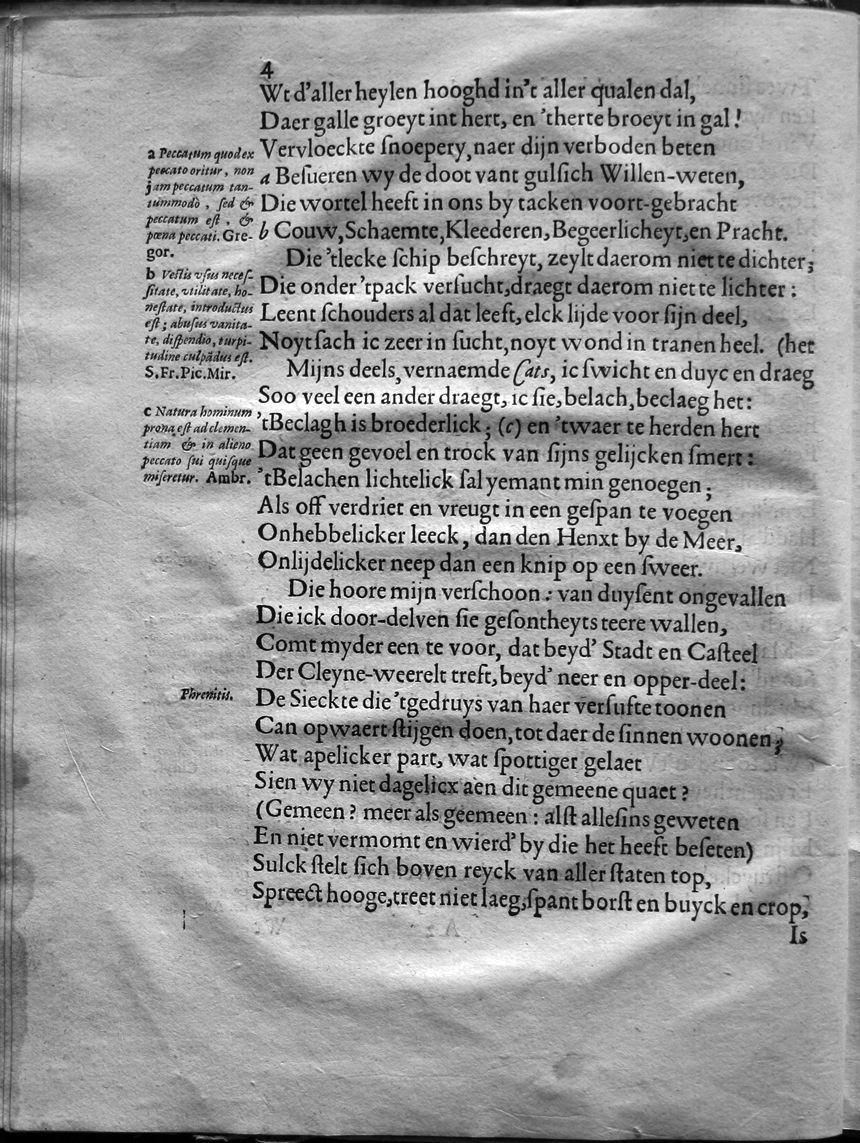 4
Wt d'aller heylen hooghd in't aller qualen dal,
Daer galle groeyt int hert, en 'therte broeyt in gal!
Vervloeckte ſnoepery, naer dijn verboden beten
a Beſueren wy de doot vant gulſich Willen-weten,
Die wortel heeft in ons by tacken voort-gebracht
b Couw, Schaemte, Kleederen, Begeerlicheyt, en Pracht.
Die 'tlecke ſchip beſchreyt, zeylt daerom niet te dichter;
Die onder 'tpack verſucht, draegt daerom niet te lichter:
Leent ſchouders al dat leeft, elck lijde voor ſijn deel,
Noyt ſach ic zeer in ſucht, noyt wond in tranen heel. (het
Mijns deels, vernaemde Cats, ic ſwicht en duyc en draeg
Soo veel een ander draegt, ic ſie, belach, beclaeg het:
'tBeclagh is broederlick; (c) en 'twaer te herden hert
Dat geen gevoel en trock van ſijns gelijcken ſmert:
'tBelachen lichtelick ſal yemant min genoegen;
Als off verdriet en vreugt in een geſpan te voegen
Onhebbelicker leeck, dan den Henxt by de Meer,
Onlijdelicker neep dan een knip op een ſweer.
Die hoore mijn verſchoon: van duyſent ongevallen
Die ick door-delven ſie geſontheyts teere wallen,
Comt myder een te voor, dat beyd' Stadt en Caſteel
Der Cleyne-weerelt treft, beyd' neer en opper-deel:
De Sieckte die 'tgedruys van haer verſufte toonen
Can opwaert ſtijgen doen, tot daer de ſinnen woonen;
Wat apelicker part, wat ſpottiger gelaet
Sien wy niet dagelicx aen dit gemeene quaet?
(Gemeen? meer als geemeen: alſt alleſins geweten
En niet vermomt en wierd' by die het heeft beſeten)
Sulck ſtelt ſich boven reyck van aller ſtaten top,
Spreect hooge, treet niet laeg, ſpant borſt en buyck en crop,
Is
a Peccatum quod ex
peccato oritur, non
jam peccatum tan-
tummodò, ſed &
peccatum eſt, &
pœna peccati. Gre-
gor.
b Veſtis vſus neceſ-
ſitate, vtilitate, ho-
neſtate, introductus
eſt; abuſus vanita-
te, diſpendio, turpi-
tudine culpādus eſt.
S.Fr.Pic.Mir.
c Natura hominum
prona eſt ad clemen-
tiam & in alieno
peccato ſui quiſque
miſeretur. Ambr.
Phrenitis.